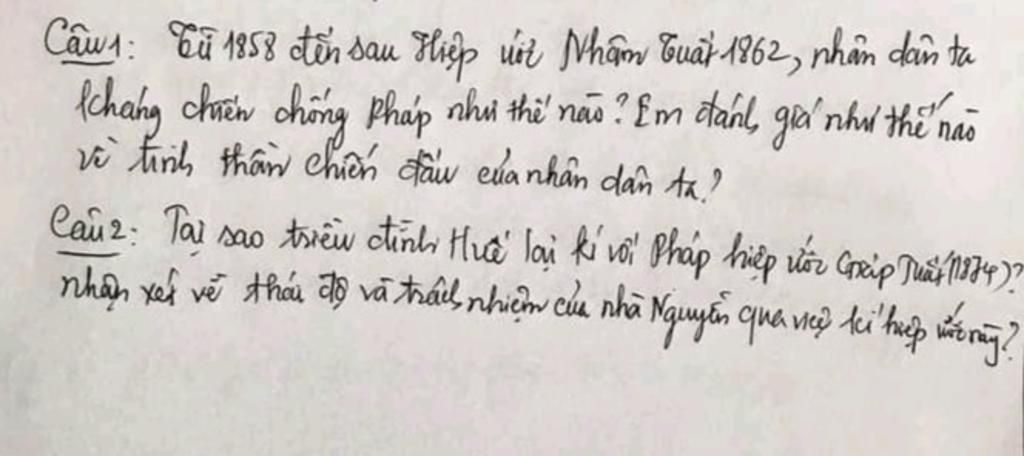 Câu 1: Từ 1858 đến sau Hiệp ước Nhâm Tuất 1862, nhân dân ta
kháng chiến chống Pháp như thế nào? Em đánh giá như thế nào
về tinh thần chiến đấu của nhân dân ta?
Câu 2: Tại sao triều đình Huế lại kí với Pháp hiệp ước Giáp Tuất (1874)?
nhận xét về thái độ và trách nhiệm của nhà Nguyễn qua việc kí hiệp ước này?